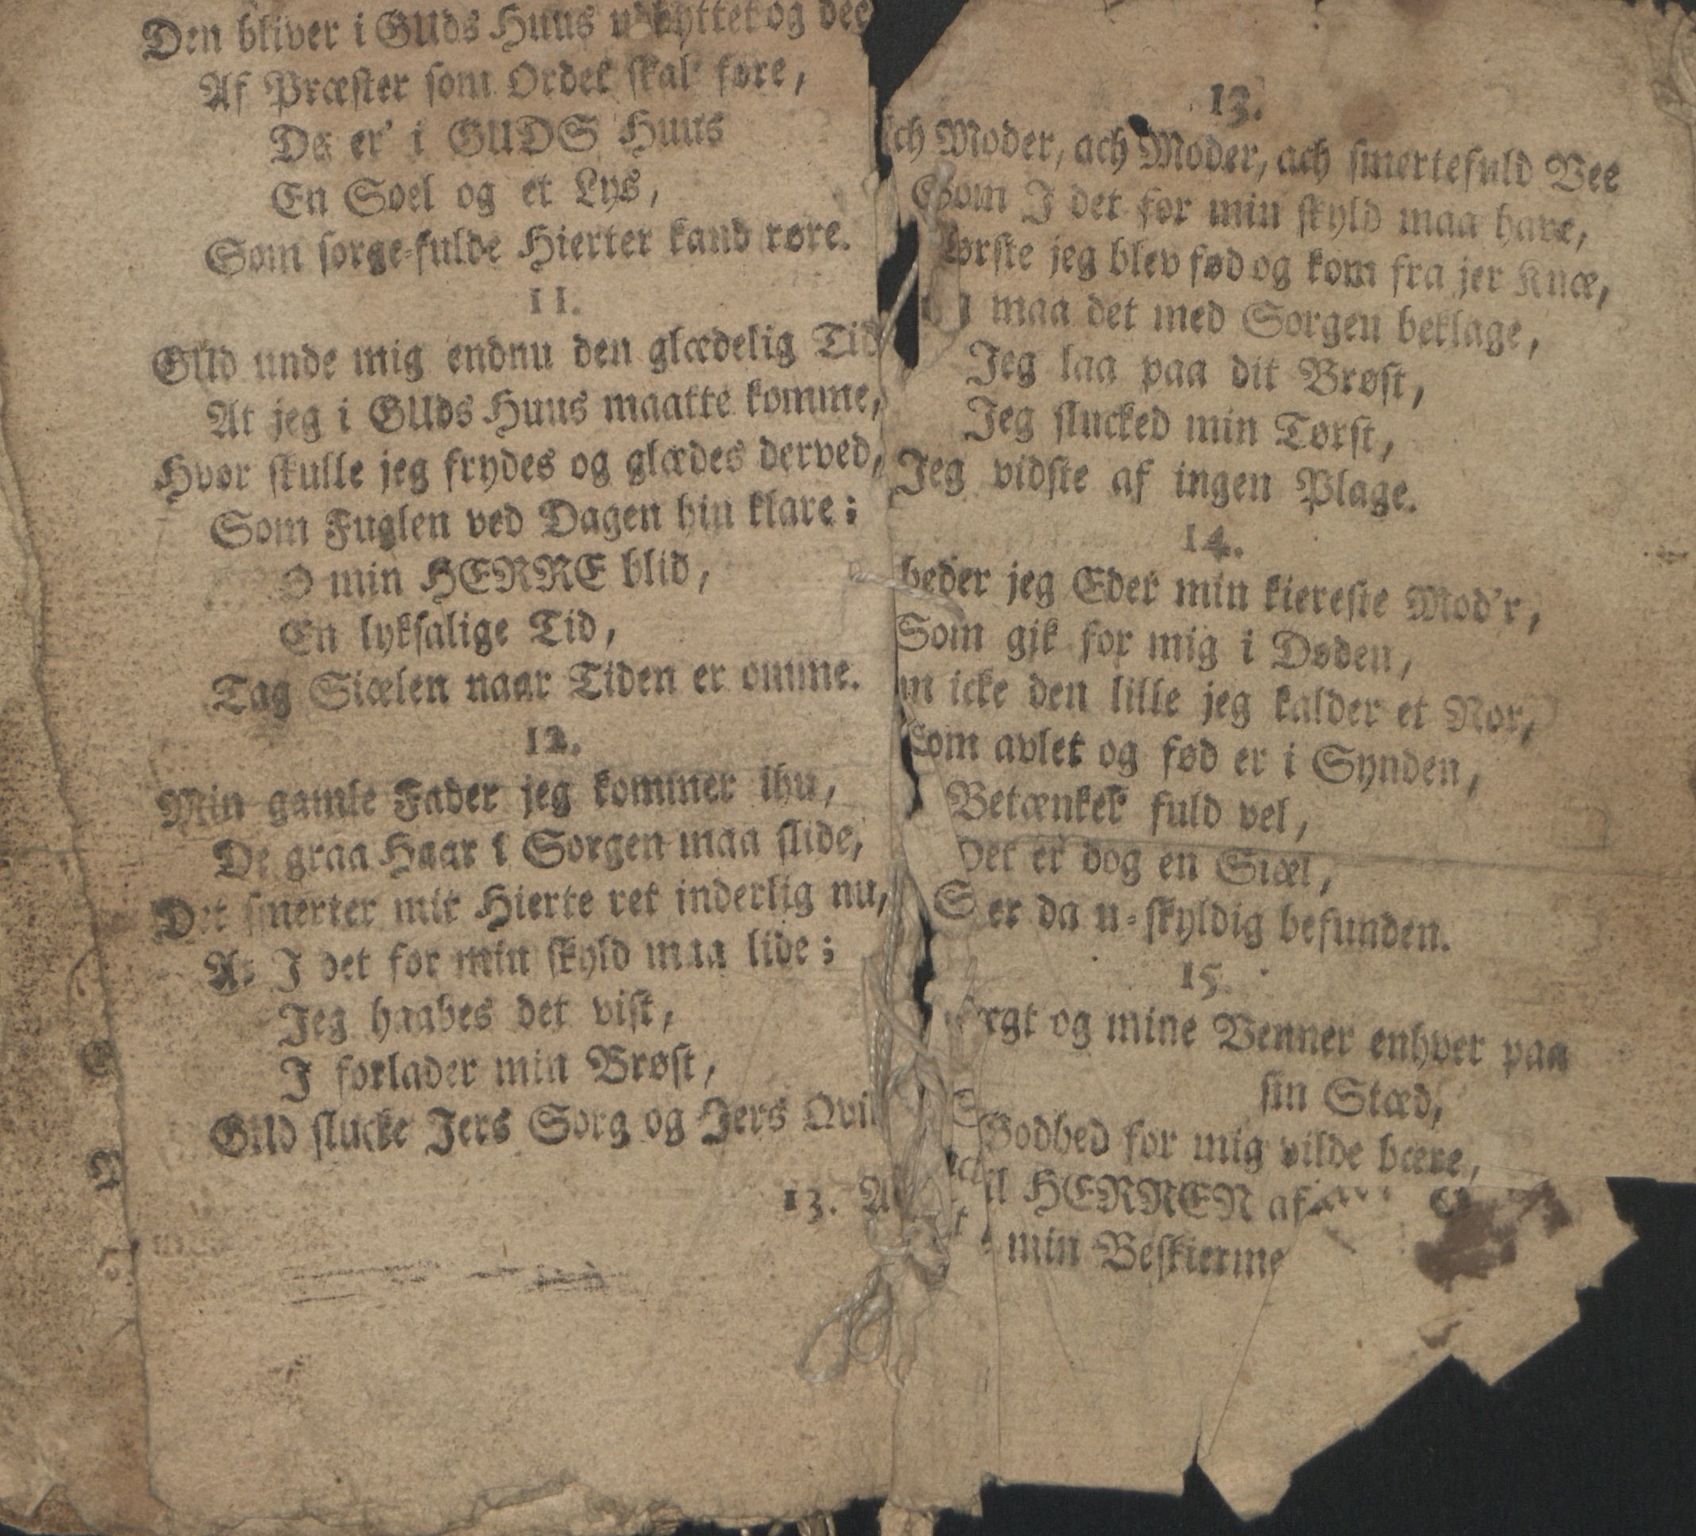 Den bliver i GUds Huus udbyttet og dee
Af Præster som Ordet skal føre,
De er i GUDS Huus
En Soel og et Lys,
Som sorge-fulde Hierter kand røre.
11.
GUd unde mig endnu den glædelig Tid
At jeg i GUds Huus maatte komme,
Hvor skulle jeg frydes og glædes derved,
Som Fuglen ved Dagen hin klare;
O min HERRE blid,
En lyksalige Tid,
Tag Siælen naar Tiden er omme.
12.
Min gamle Fader jeg kommer ihu,
De graa Haar i Sorgen maa slide,
Det smerter mit Hierte ret inderlig nu,
At I det for min skyld maa lide;
Jeg haabes det vist,
I forlader min Brøst,
GUd slucke Jers Sorg og Jers Qvi
13. A
13.
ch Moder, ach Moder, ach smertefuld Vee
Som I det for min skyld maa have,
ørste jeg blev fød og kom fra jer Knæ,
maa det med Sorgen beklage,
Jeg laa paa dit Brøst,
Jeg slucked min Tørst,
Jeg vidste af ingen Plage.
14.
beder jeg Eder min kiereste Mod'r,
Som gik for mig i Døden,
m icke den lille jeg kalder et Nor,
Som avlet og fød er i Synden,
Betænker fuld vel,
Det er dog en Siæl,
S er da u-skyldig befunden.
15.
rgt og mine Venner enhver paa
sin Stæd,
Godhed for mig vilde bære,
il HERREN af
min Beskierme